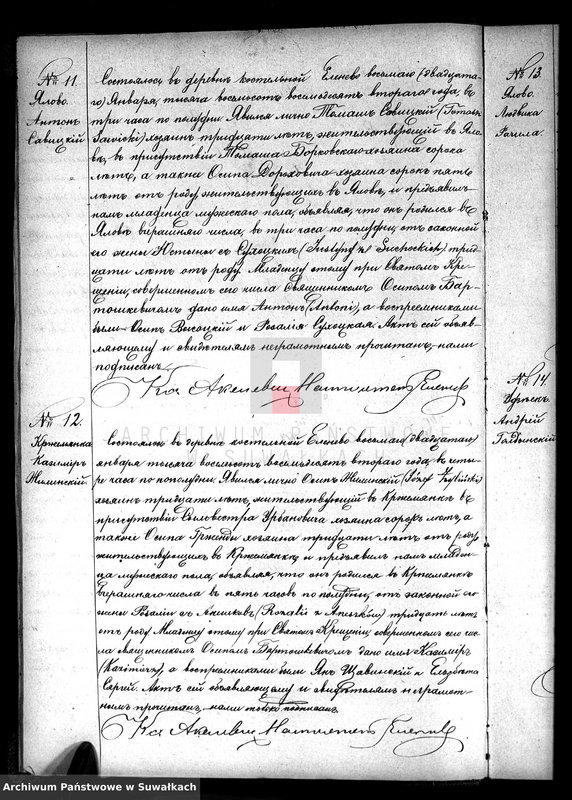 № 11.
Ялово.
Антонъ
Савицкій
Состоялось въ деревнѣ костельной Еленево восьмаго (двадцата-
го) Января, тысяча восемьсотъ восемьдесятъ втораго года, въ
три часа по полудни. Явился лично Томашъ Савицкій (Tomasz
Sawicki) хозяинъ тридцати лѣтъ, жительствующій въ Яло-
вѣ, въ присутствіи Томаша Борковскаго хозяина сорока
лѣтъ, а также Осипа Дороховича хозяина сорокъ пять
лѣтъ отъ роду, жительствующихъ въ Яловѣ, и предъявилъ
намъ младенца мужескаго пола, объявляя, что онъ родился въ
Яловѣ вчерашняго числа, въ три часа по полудни, отъ законной
его жены Юстыны съ Сухоцкихъ (Justyny z Suchockich) трид-
цати лѣтъ отъ роду. Младенцу этому при Святомъ Кре-
щеніи, совершенномъ сего числа Священникомъ Осипомъ Бар-
тошкевичемъ дано имя Антонъ (Antoni), а воспреемниками
были Осипъ Высоцкій и Розалія Сухоцкая. Актъ сей объяв-
ляющему и свидѣтелямъ неграмотнымъ прочитанъ, нами
подписанъ.
№ 12.
Кржеманка
Казиміръ
Жилинскій
Состоялось въ деревнѣ костельной Еленево восьмаго (двадцатаго)
января тысяча восемьсотъ восемьдесятъ втораго года, въ четы-
ре часа по полудни. Явился лично Осипъ Жилинскій (Józef Żyliński)
хозяинъ тридцати лѣтъ, жительствующій въ Кржеманкѣ въ
присутствіи Сильвестра Урбановича хозяина сорокъ лѣтъ, а
также Осипа хозяина тридцати лѣтъ отъ роду,
жительствующихъ въ Кржеманкѣ, и предъявилъ намъ младен-
ца мужескаго пола, объявляя, что онъ родился въ Кржеманкѣ
вчерашняго числа въ пять часовъ по полудни, отъ законной его
жены Розаліи съ (Rozalii z) тридцать лѣтъ
отъ роду. Младенцу этому при Святомъ Крещеніи, совершенномъ сего чи-
сла священникомъ Осипомъ Бартошкевичемъ дано имя Казиміръ
(Kazimierz), а воспреемниками были Янъ Щавинскій и Ельзбета
Сергѣй. Актъ сей объявляющему и свидѣтелямъ неграмот-
нымъ прочитанъ, нами только подписанъ.
№ 13
Ялово.
Людвика
№ 14
Андрей
ARCHIWUM PAŃSTWOWE
W SUWAŁKACH
Archiwum Państwowe w Suwałkach